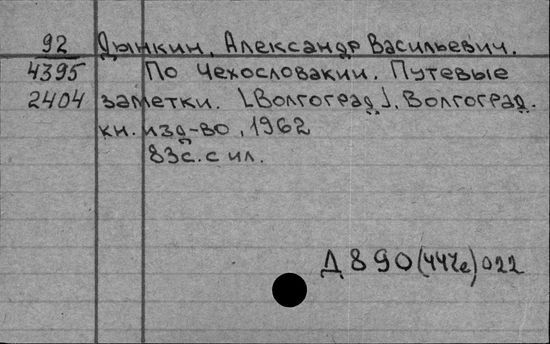 92 Дынкин, Александр Васильевич.
4395 По Чехословакии. Путевые
2404 заметки. [Волгоград], Волгоград.
кн. изд-во, 1962
83с. с ил.
Д 890(44че)022